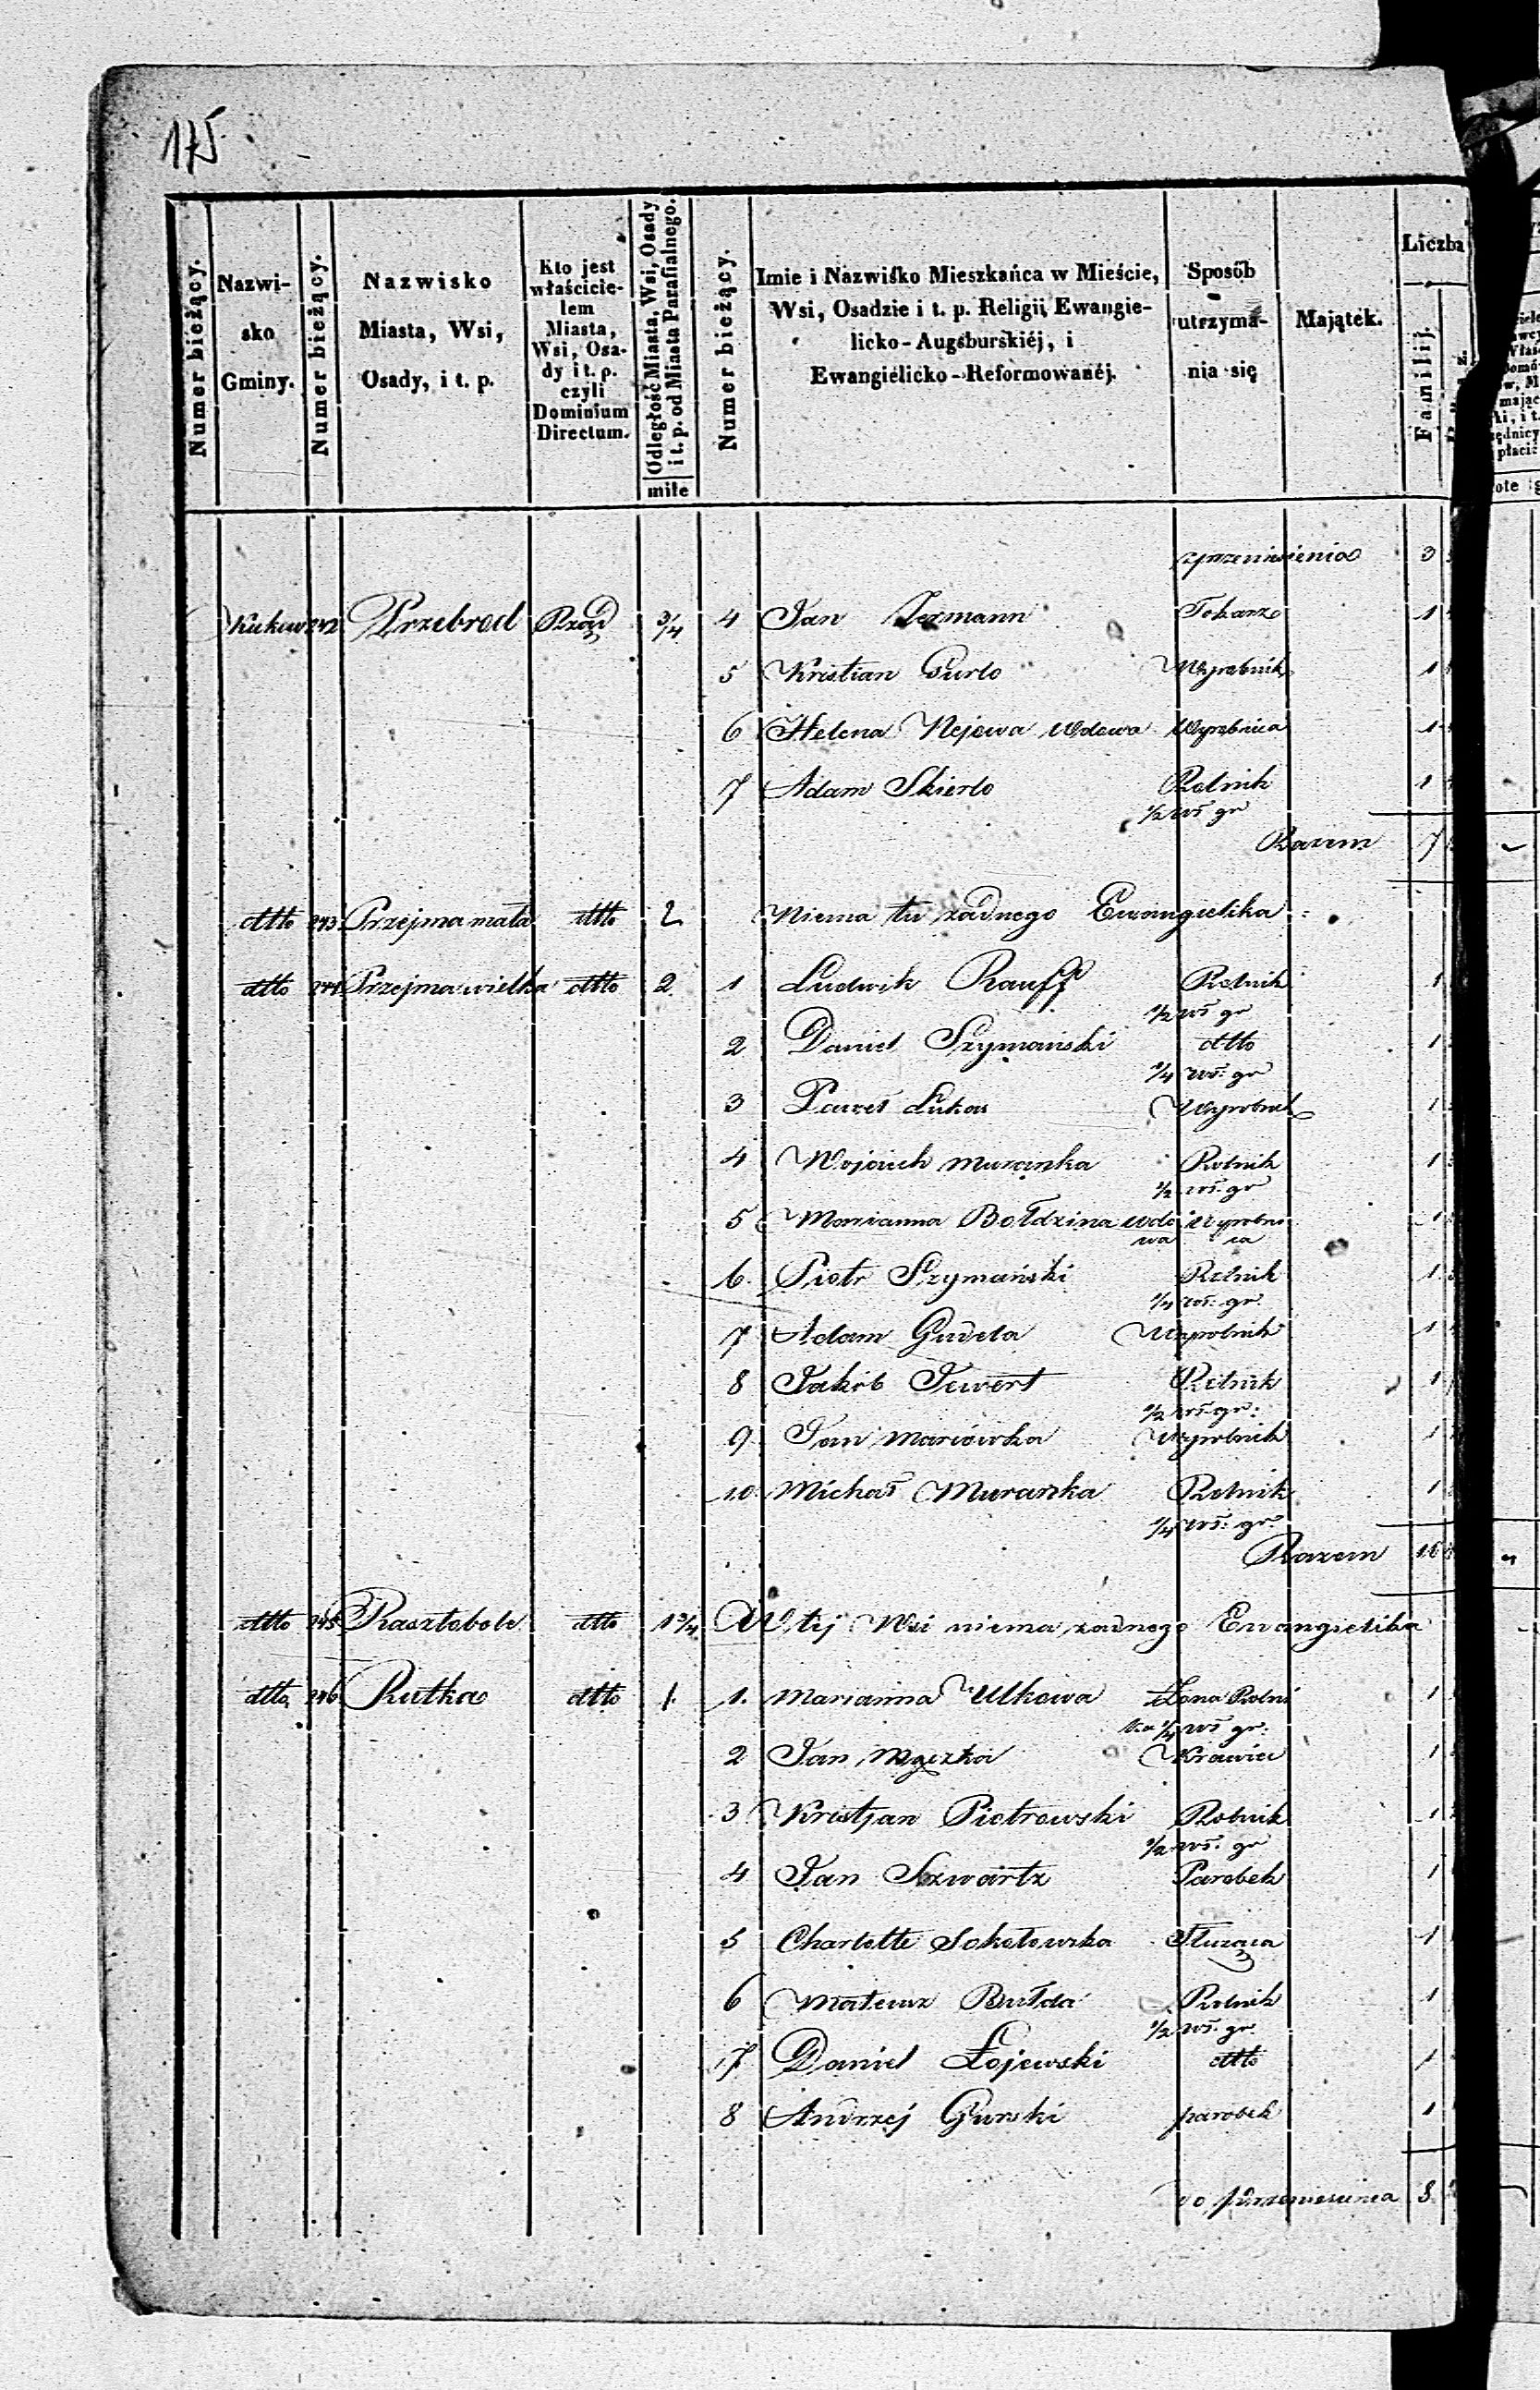 175
Numer bieżący.
Nazwi-
sko
Gminy.
Numer bieżący.
Nazwisko
Miasta, Wsi,
Osady, i t. p.
Kto jest
właścicie-
lem
Miasta,
Wsi, Osa-
dy i t. p.
czyli
Dominium
Directum.
Odległość Miasta, Wsi, Osady
i t. p. od Miasta Parafialnego.
mile
Numer bieżący.
Imie i Nazwisko Mieszkańca w Mieście,
Wsi, Osadzie i t. p. Religii Ewangie-
licko-Augsburskiéj, i
Ewangielicko-Reformowanéj.
Sposób
utrzyma-
nia się
Majątek.
Liczba
Familij.
z przeniesienia 3
Kukow 242 Przebrod Rząd 3/4 4 Jan Jermann Tokarz 1
5 Kristian Gurlo Wyrobnik 1
6 Helena Nejowa wdowa Wyrobnica 1
7 Adam Skierlo Rolnik 1
1/2 wł gr
Razem 7
dtto 243 Przejma mała dtto 2 Niema tu żadnego Ewangielika
dtto 244 Przejma wielka dtto 2. 1 Ludwik Rauff Rolnik 1
1/2 wł gr
2 Daniel Szymański dtto 1
1/4 wł. gr
3 Paweł Lukas Wyrobnik 1
4 Wojciech Muranka Rolnik 1
1/2 wł. gr
5 Marianna Bołdzina wdo Wyrobni 1
wa ca
6. Piotr Szymański Rolnik 1
1/4 wł. gr.
7 Adam Gudela Wyrobnik 1
8 Jakób Jewert Rolnik 1
1/2 wł. gr.
9 Jan Marcówka Wyrobnik 1
10 Michał Muranka Rolnik 1
1/4 wł. gr.
Razem 10
dtto 245 Rasztobole dtto 1 3/4 W tej Wsi niema żadnego Ewangielika
dtto 246 Rutka dtto 1. 1. Marianna Ulkowa Żona Rolni 1
ka 1/4 wł gr.
2 Jan Mączka Krawiec 1
3 Kristjan Piotrowski Rolnik 1
1/2 wł. gr
4 Jan Szwartz Parobek 1
5 Charlotte Sokołowska Służąca 1
6 Mateusz Bułda Rolnik 1
1/2 wł. gr.
7 Daniel Łojewski dtto 1
8 Andrzej Gurski parobek 1
do przeniesienia 8